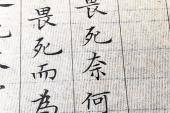 畏死奈何
畏死而為